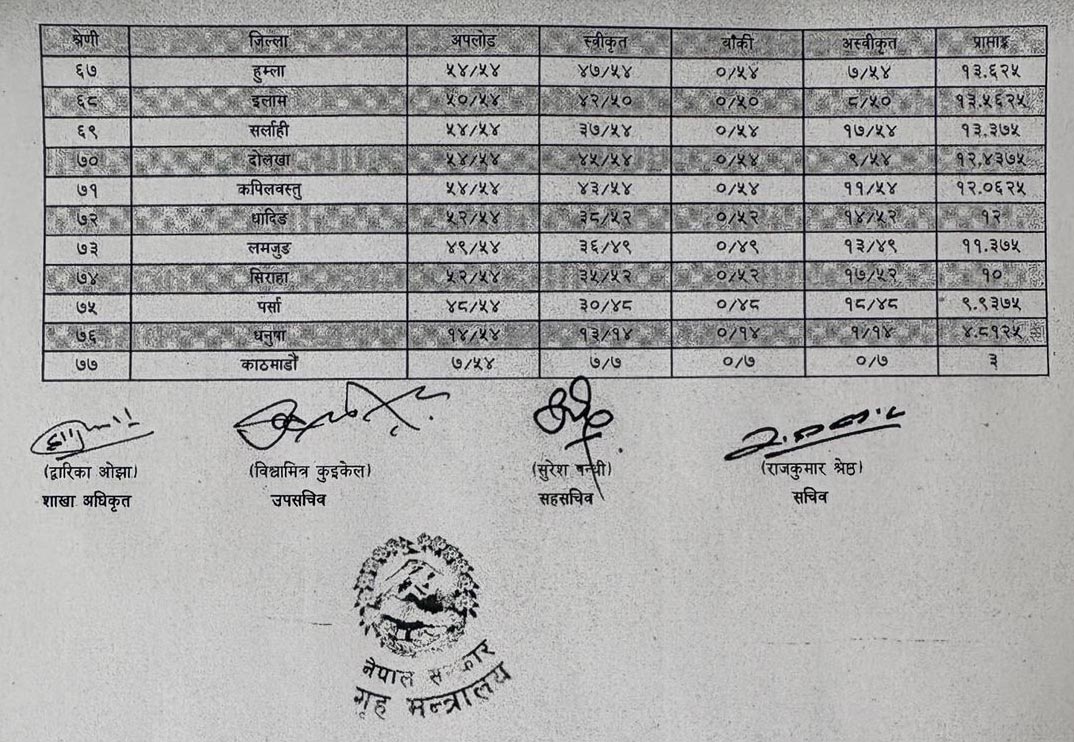 श्रेणी जिल्ला अपलोड स्वीकृत बाँकी अस्वीकृत प्राप्ताङ्क
६७ हुम्ला ५४/५४ ४७/५४ ०/५४ ७/५४ १३.६२५
६८ इलाम ५०/५४ ४२/५० ०/५० ८/५० १३.५६२५
६९ सर्लाही ५४/५४ ३७/५४ ०/५४ १७/५४ १३.३७५
७० दोलखा ५४/५४ ४५/५४ ०/५४ ९/५४ १२.४३७५
७१ कपिलवस्तु ५४/५४ ४३/५४ ०/५४ ११/५४ १२.०६२५
७२ धादिङ ५२/५४ ३८/५२ ०/५२ १४/५२ १२
७३ लमजुङ ४९/५४ ३६/४९ ०/४९ १३/४९ ११.३७५
७४ सिराहा ५२/५४ ३५/५२ ०/५२ १७/५२ १०
७५ पर्सा ४८/५४ ३०/४८ ०/४८ १८/४८ ९.९३७५
७६ धनुषा १४/५४ १३/१४ ०/१४ १/१४ ४.८१२५
७७ काठमाडौं ७/५४ ७/७ ०/७ ०/७ ३
(द्वारिका ओझा) (विश्वामित्र कुइकेल) (सुरेश पन्थी) (राजकुमार श्रेष्ठ)
शाखा अधिकृत उपसचिव सहसचिव सचिव
नेपाल सरकार
गृह मन्त्रालय